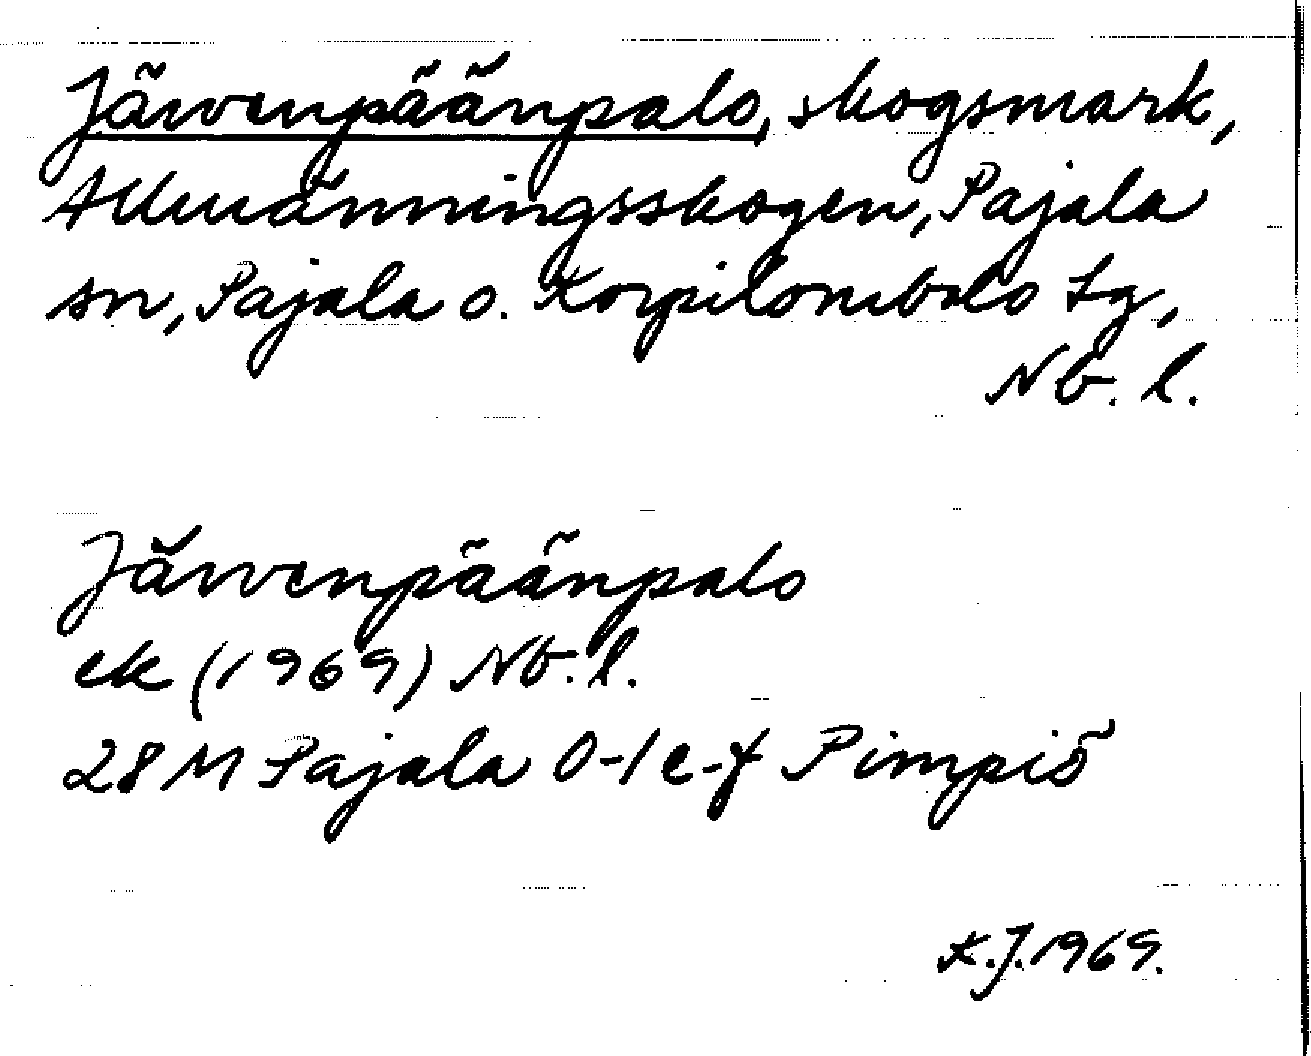 Järvenpäänpalo, skogsmark,
Allmänningsskogen, Pajala
sn, Pajala o. Korpilombolo tg,
Nb. l.
Järvenpäänpalo
ek (1969) Nb. l.
28 M Pajala 0-1 e-f Pimpiö
K.J. 1969.